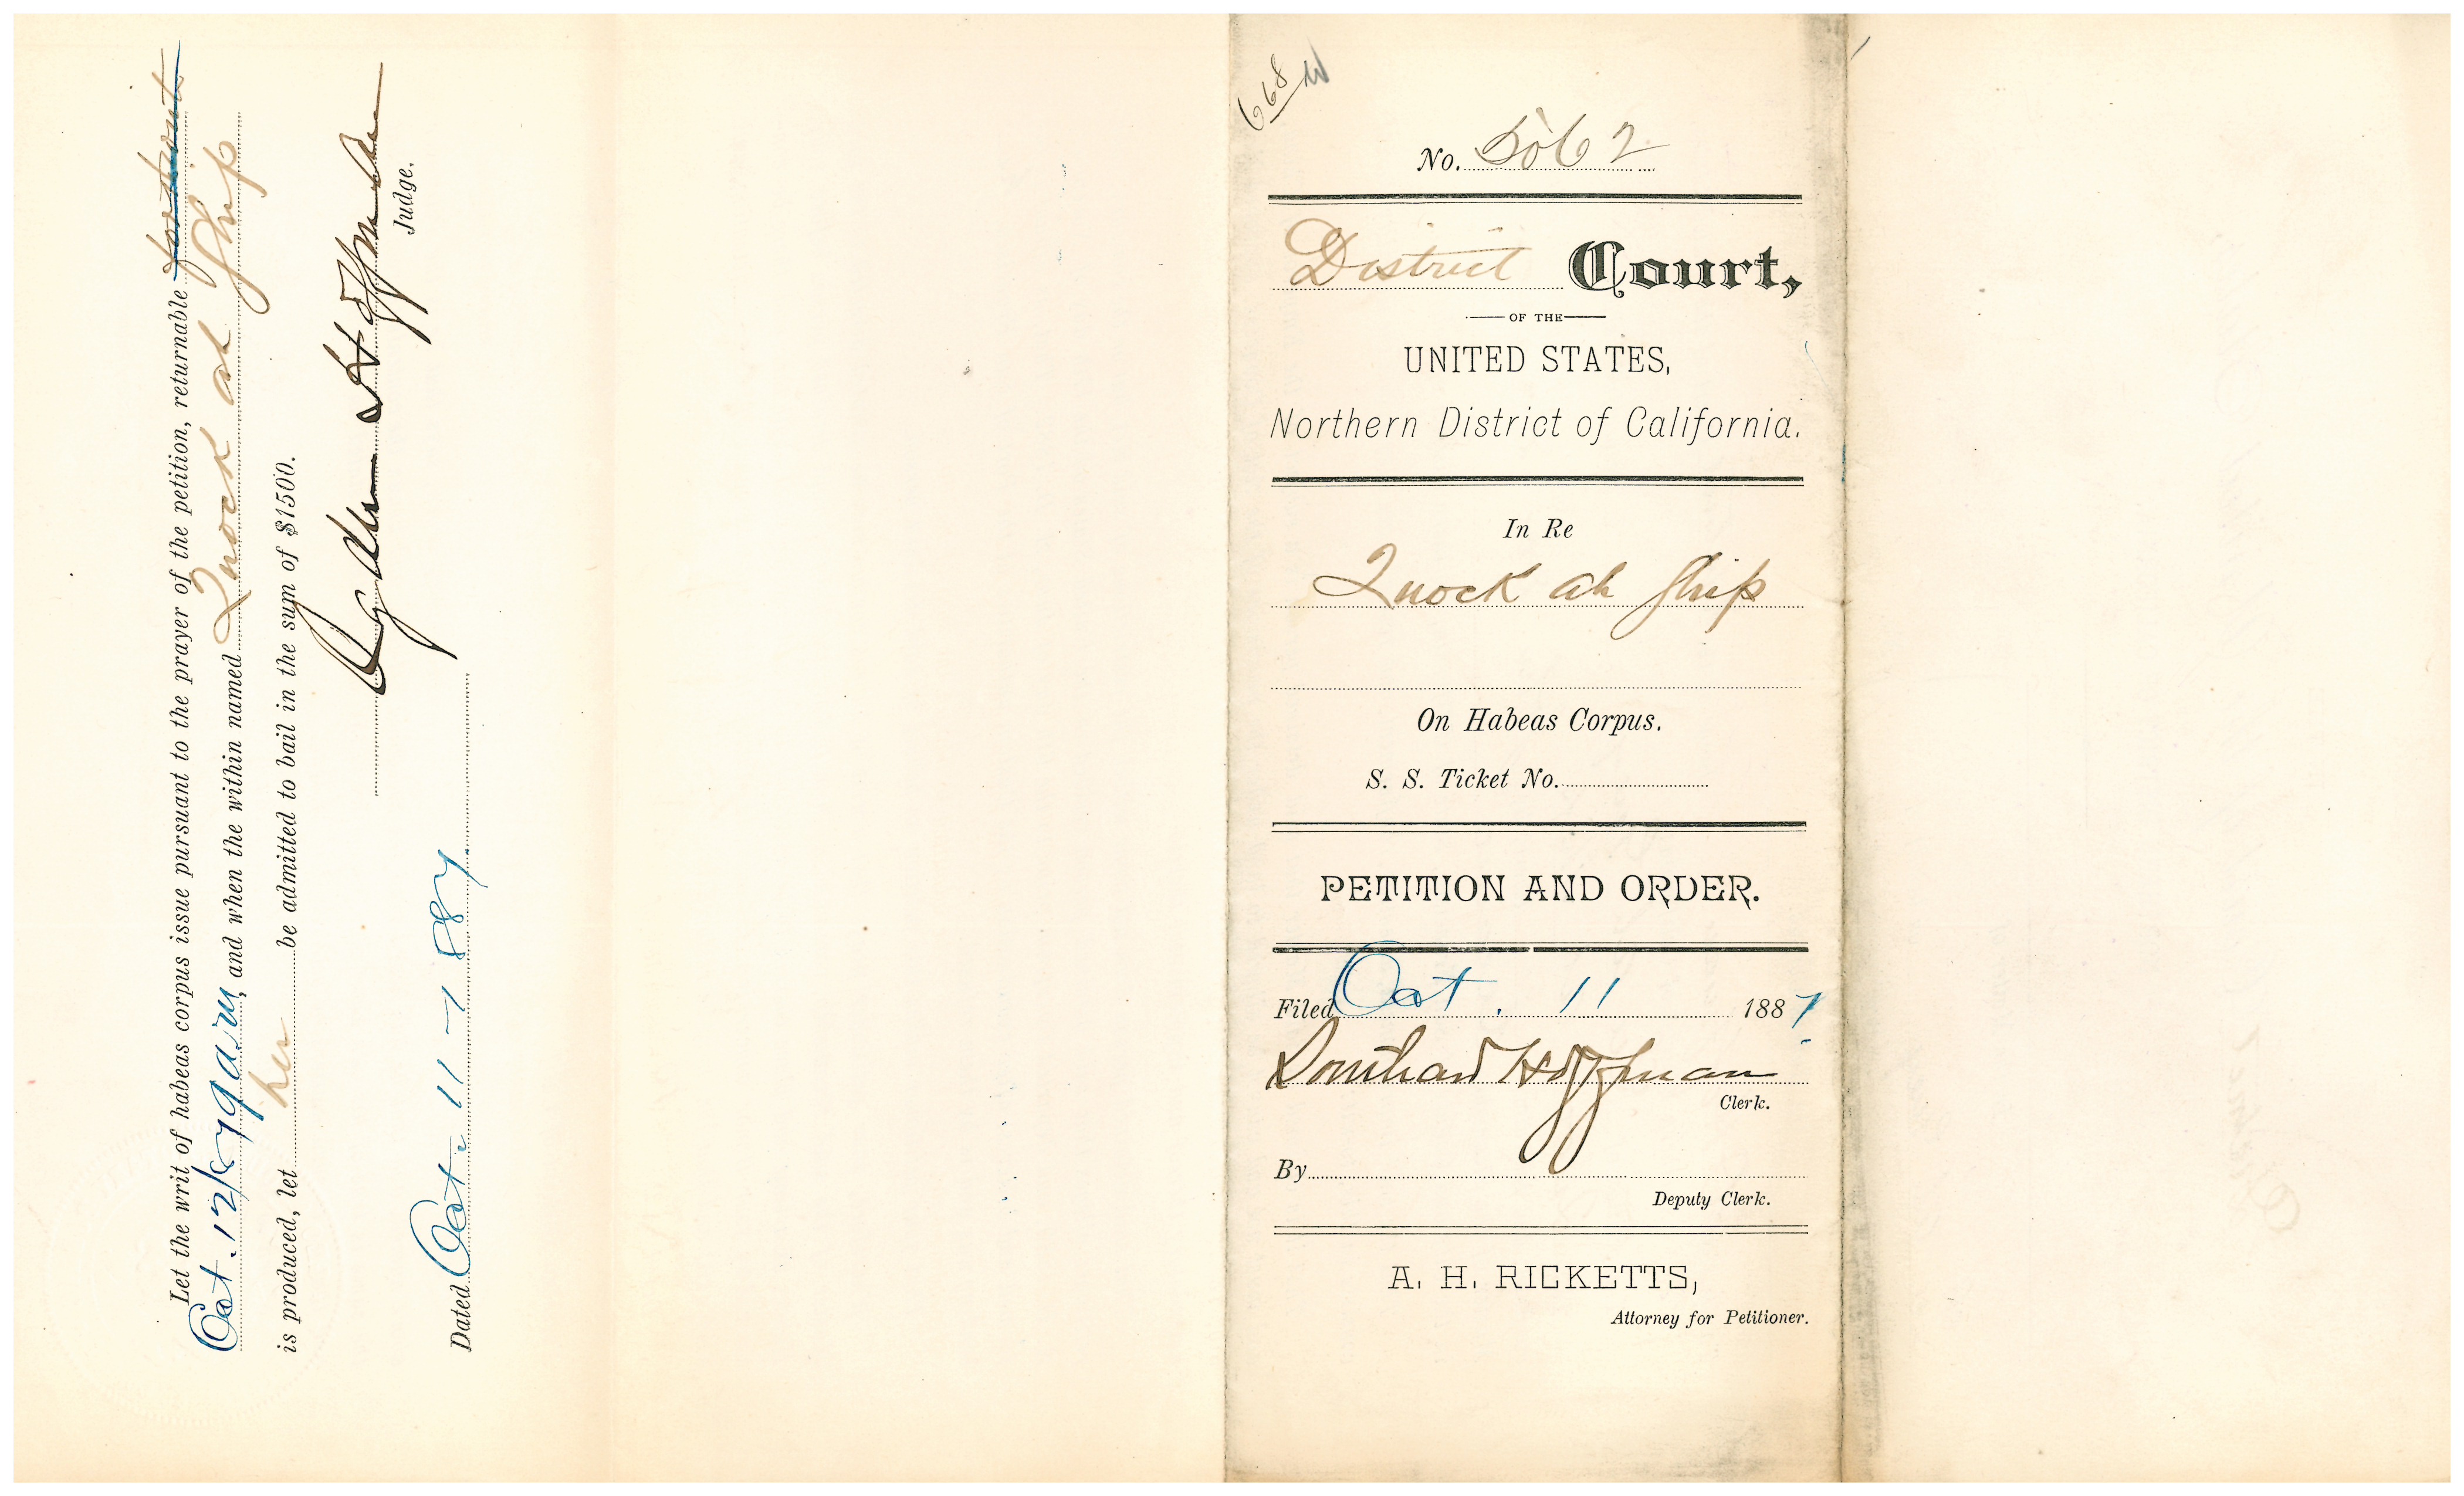 Let the writ of habeas corpus issue pursuant to the prayer of the petition, returnable forthwith
Oct. 12/87 9 a.m, and when the within named Quock ah Ship
is produced, let her be admitted to bail in the sum of $1500.
Ogden Hoffman
Judge.
Dated Oct. 11 1887.
668
No. 5062
District Court,
OF THE
UNITED STATES,
Northern District of California.
In Re
Quock ah Ship
On Habeas Corpus.
S. S. Ticket No.
PETITION AND ORDER.
Filed Oct. 11 1887.
Southard Hoffman
Clerk.
By
Deputy Clerk.
A. H. RICKETTS,
Attorney for Petitioner.